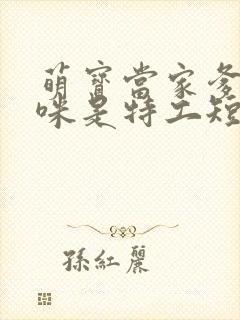 萌寶當家爹
咪是特工短
孫紅麗